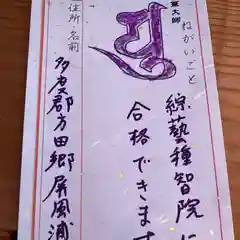 弘大師
ねがいごと
綜藝種智院に
合格できます
住所・名前
多度郡方田郷屏風浦